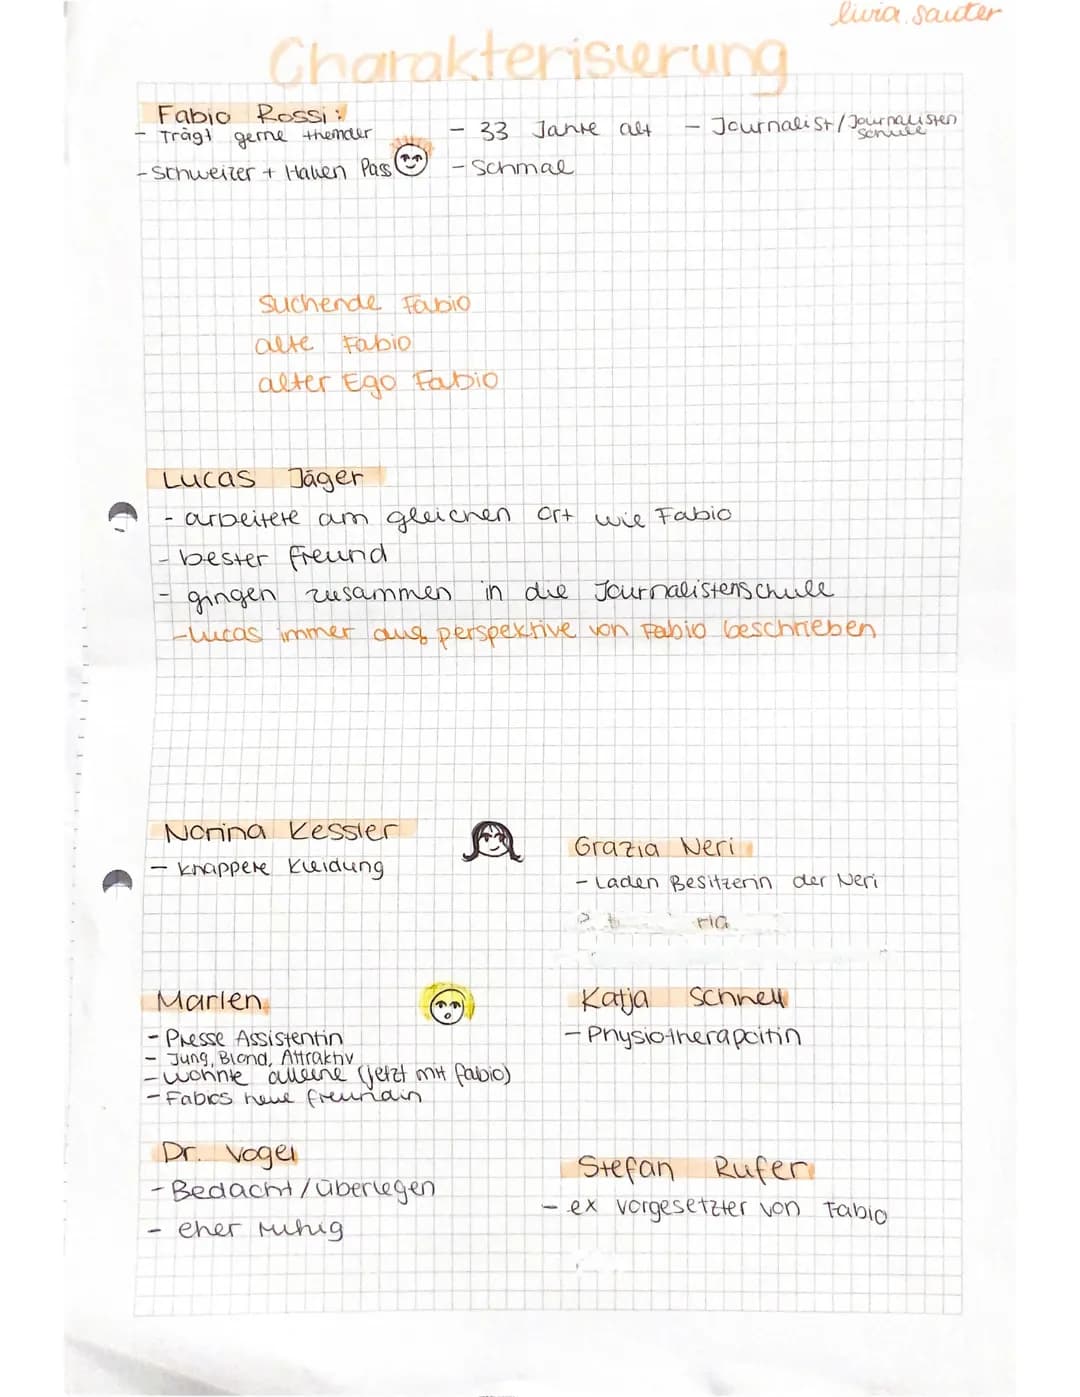 livia.sauter
Charakterisierung
Fabio Rossi:
- Trägt gerne Hemder
- 33 Jahre alt
- Journalist/Journalisten schule
- Schweizer + Italien Pass
- Schmal
Suchende Fabio
alte Fabio
alter Ego Fabio
Lucas Jäger
- arbeitete am gleichen Ort wie Fabio
- bester freund
- gingen zusammen in die Journalistenschule
- Lucas immer aus perspektive von Fabio beschrieben
Norina Kessler
- knappere Kleidung
Grazia Neri
- Laden Besitzerin der Neri
ria
Marlen
- Presse Assistentin
- Jung, Blond, Attraktiv
- wohnte alleine (jetzt mit fabio)
- Fabios neue freundin
Katja Schnell
- Physiotherapeitin
Dr. Vogel
- Bedacht/überlegen
- eher ruhig
Stefan Rufer
- ex vorgesetzter von Fabio